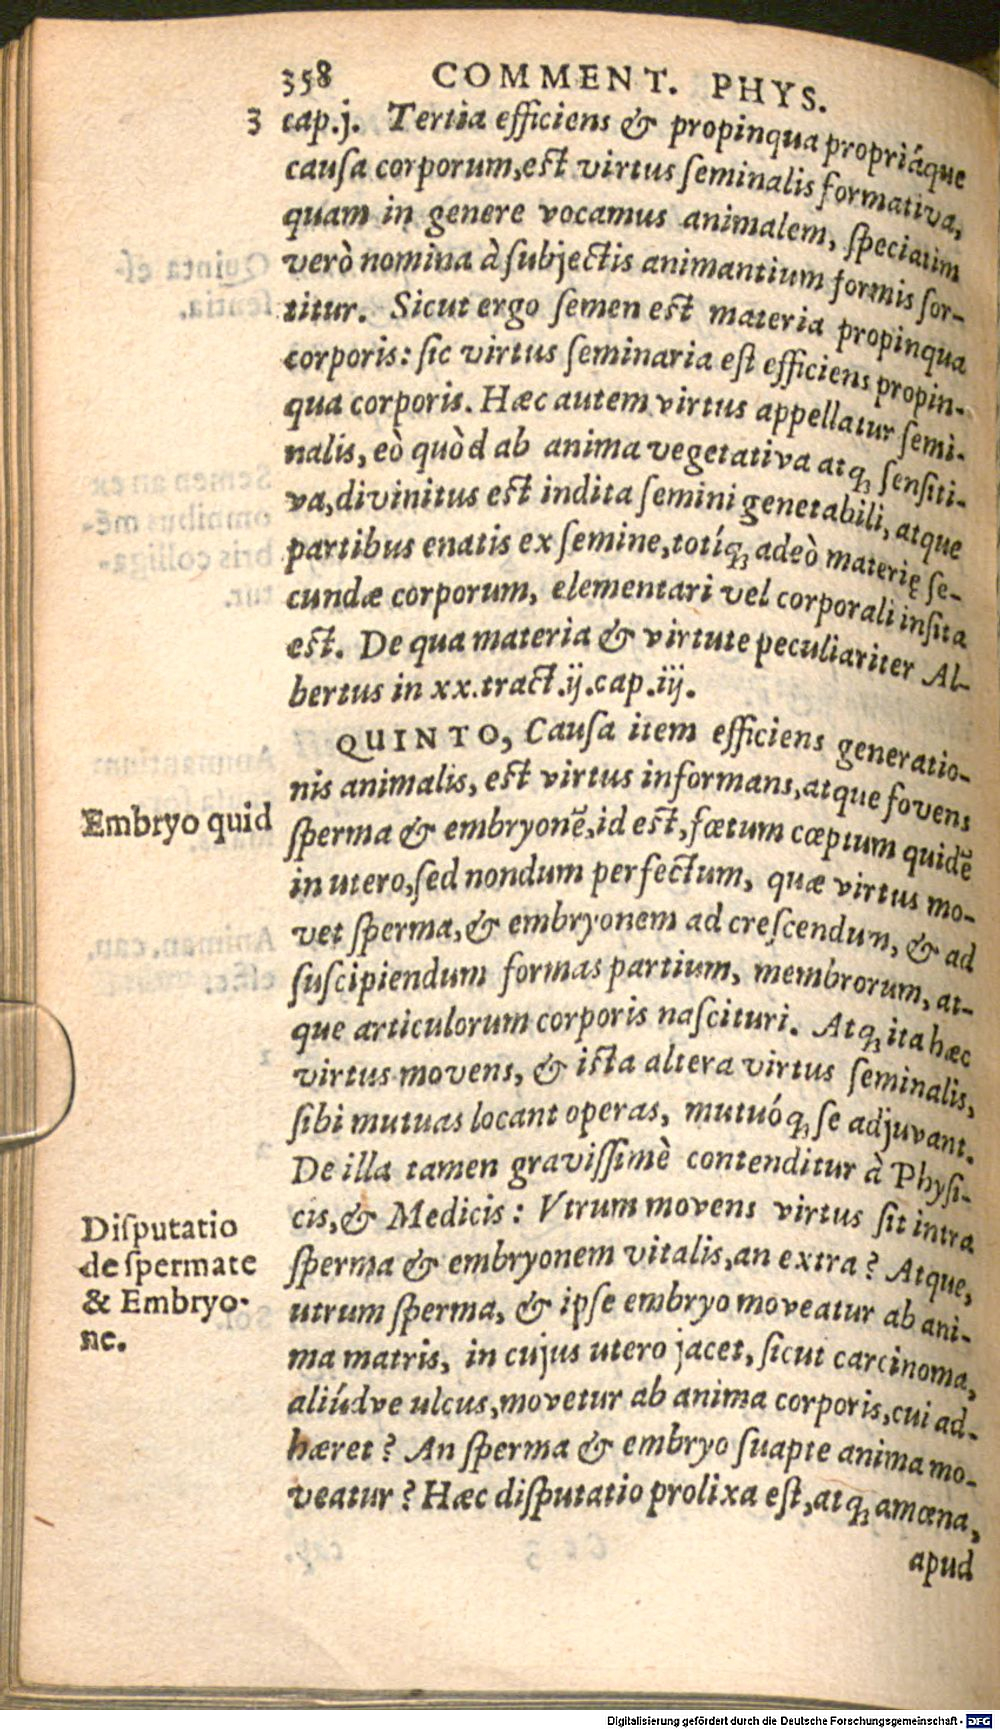 358 COMMENT. PHYS.
3 cap.j. Tertia efficiens & propinqua propriáque
causa corporum, est virtus seminalis formativa,
quam in genere vocamus animalem, speciatim
verò nomina à subjectis animantium formis sor-
titur. Sicut ergo semen est materia propinqua
corporis: sic virtus seminaria est efficiens propin-
qua corporis. Hæc autem virtus appellatur semi-
nalis, eò quòd ab anima vegetativa atq; sensiti-
va, divinitus est indita semini genetabili, atque
partibus enatis ex semine, totíq; adeò materię se-
cundæ corporum, elementari vel corporali insita
est. De qua materia & virtute peculiariter Al-
bertus in xx. tract.ij.cap.iij.
QUINTO, Causa item efficiens generatio-
nis animalis, est virtus informans, atque fovens
Embryo quid
sperma & embryonē, id est, fœtum cœptum quidē
in utero, sed nondum perfectum, quæ virtus mo-
vet sperma, & embryonem ad crescendum, & ad
suscipiendum formas partium, membrorum, at-
que articulorum corporis nascituri. Atq; ita hæc
virtus movens, & ista altera virtus seminalis,
sibi mutuas locant operas, mutuóq; se adjuvant.
De illa tamen gravissimè contenditur à Physi-
cis, & Medicis: Vtrum movens virtus sit intra
Disputatio
de spermate
& Embryo-
ne.
sperma & embryonem vitalis, an extra? Atque,
utrum sperma, & ipse embryo moveatur ab ani-
ma matris, in cujus utero jacet, sicut carcinoma,
aliúdve ulcus, movetur ab anima corporis, cui ad-
hæret? An sperma & embryo suapte anima mo-
veatur? Hæc disputatio prolixa est, atq; amœna,
apud
Digitalisierung gefördert durch die Deutsche Forschungsgemeinschaft - DFG